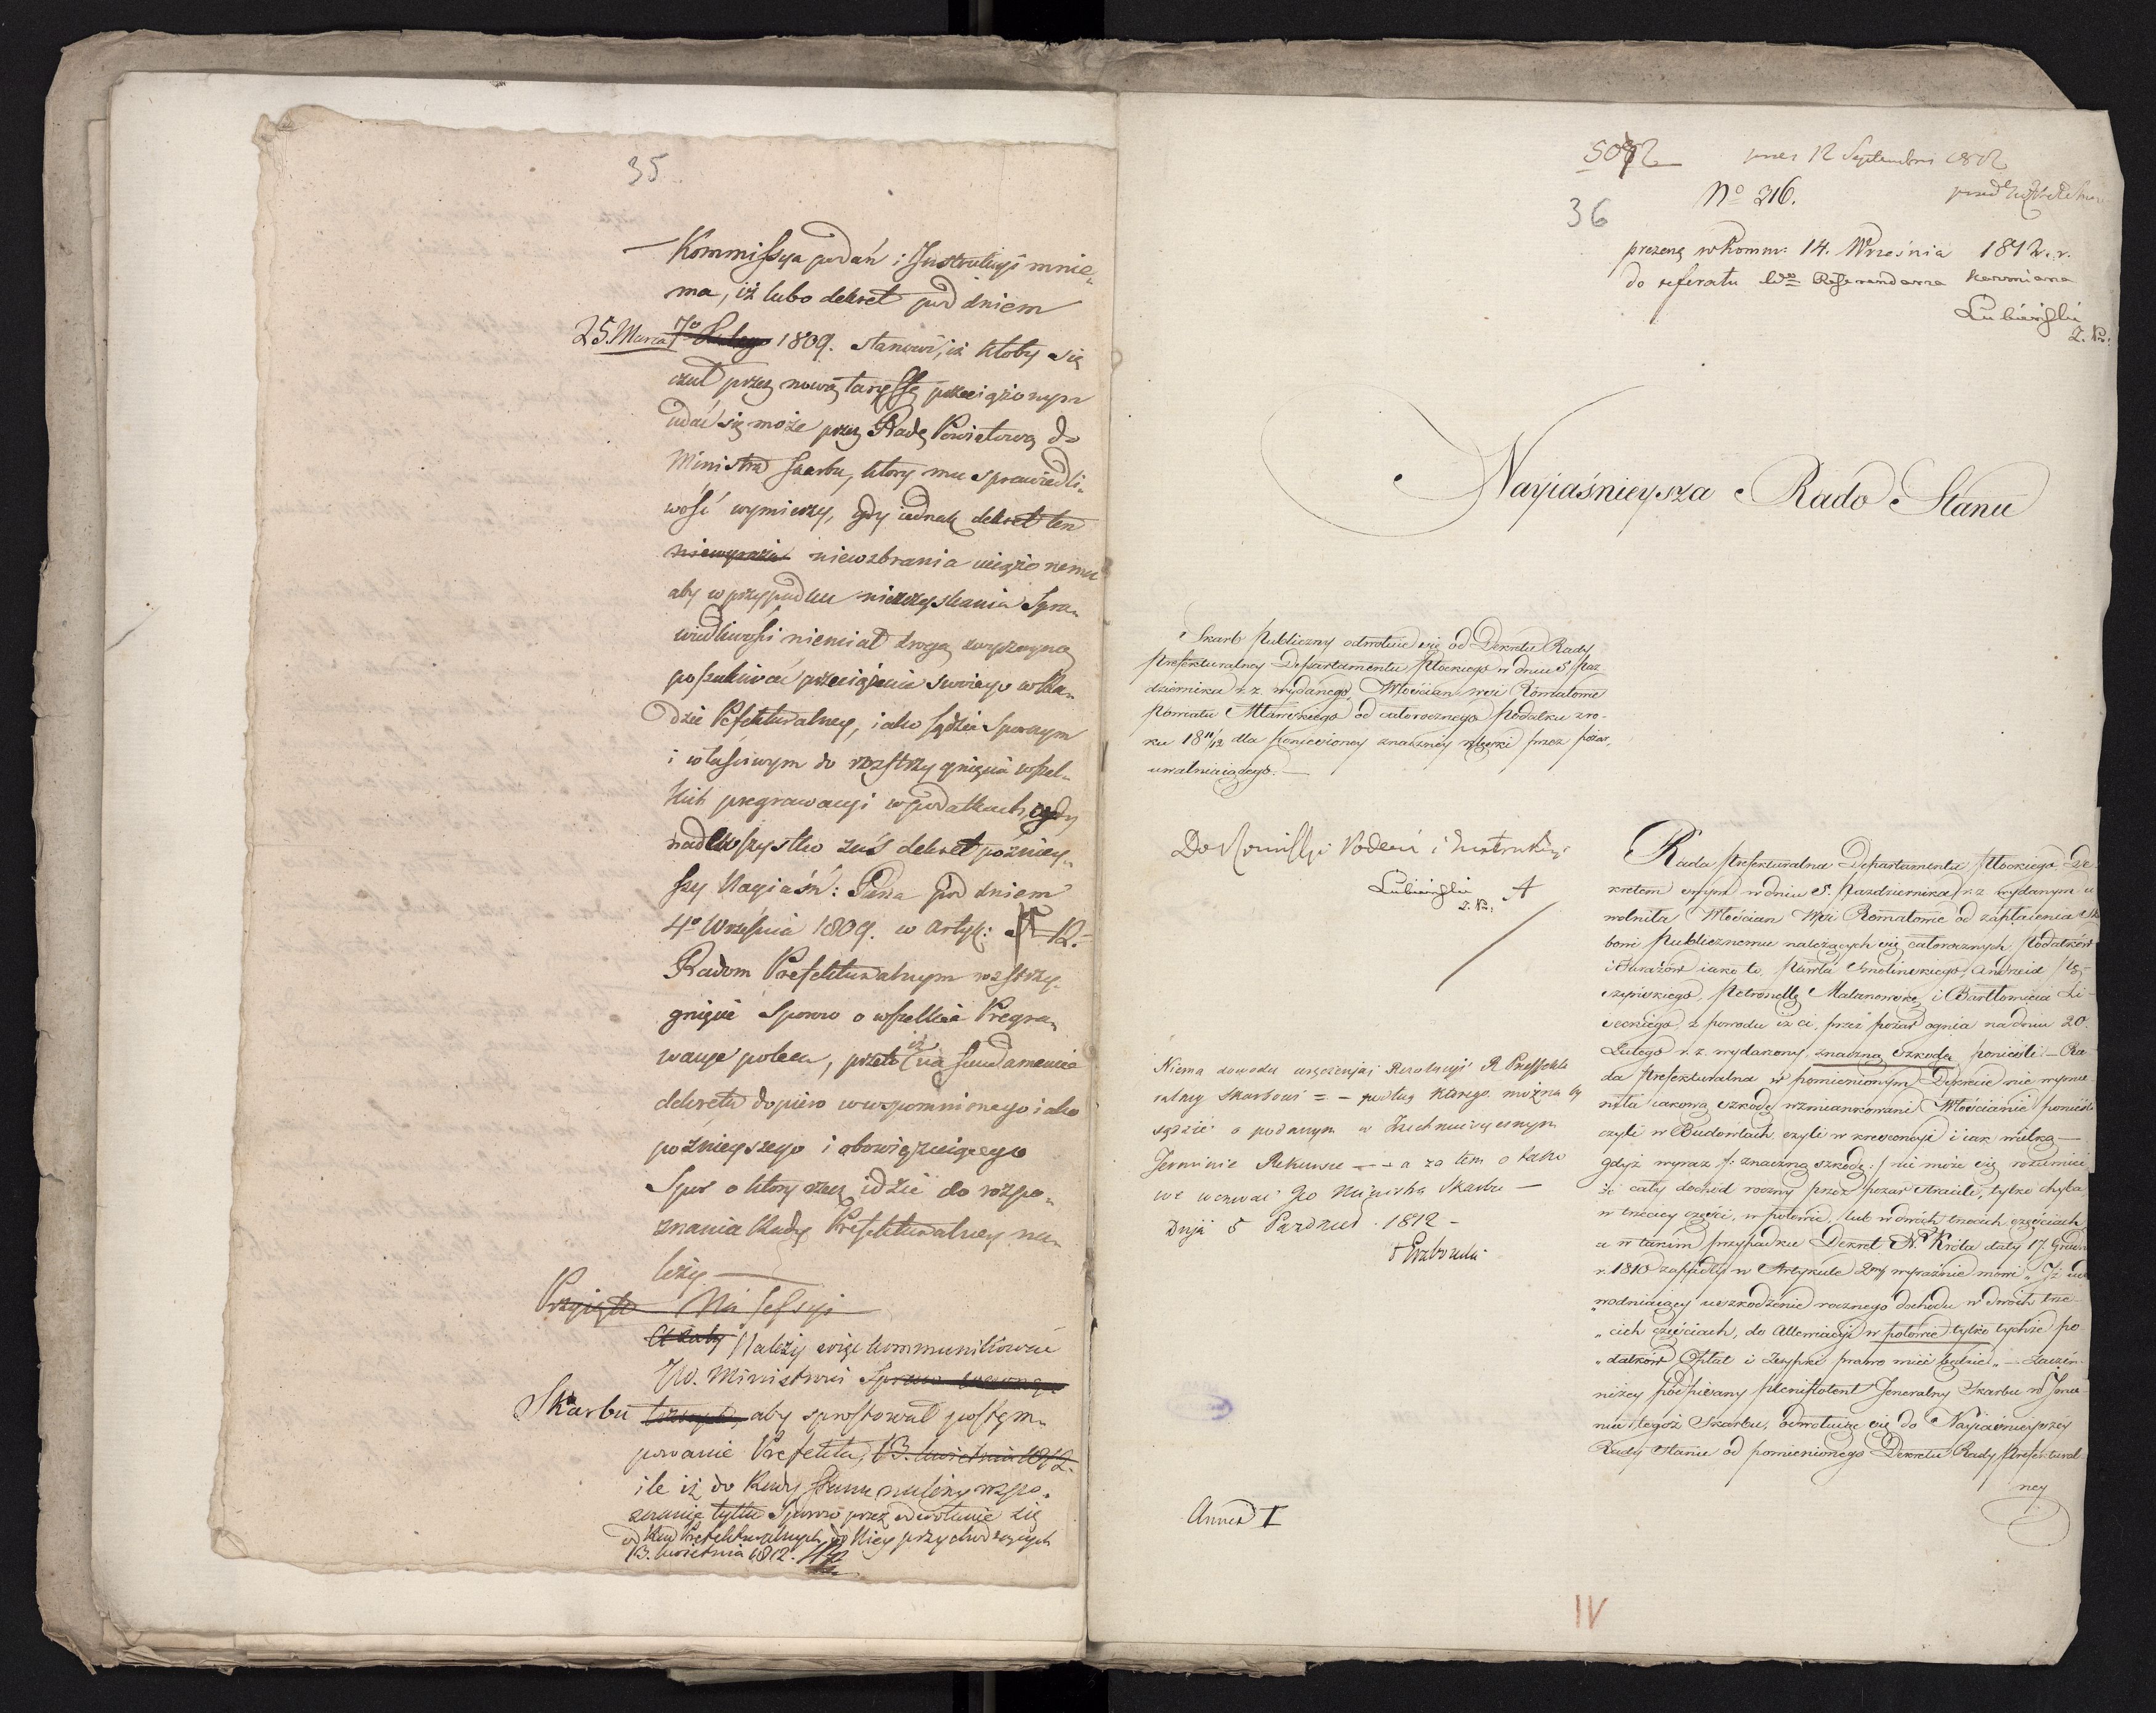 35
Kommissya podań i Instrukcyi mnie„
ma, iż lubo dekret pod dniem
25. Marca 7º Lutego 1809. stanowi, iż ktoby się
czuł przez nową taryffę przeciążonym
udać się może przez Radę Powiatową do
Ministra Skarbu, ktory mu sprawiedli„
wość wymierzy, gdy iednak dekret ten
niewyraża niewzbrania uciążonemu
aby w przypadku nieuzyskania Spra„
wiedliwości niemiał drogą zwyczayną
poszukiwać przeciążenia swoiego w Ra„
dzie Pefekturalney, iako sądzie Spornym
i właściwym do rozstrzygnięcia wszel„
kich pregrawacyi w podatkach, gdy
nad wszystko zaś dekret poźniey„
szy Nayiaśn: Pana pod dniem
4º Września 1809. w artyk: 12.
Radom Prefekturalnym rozstrzy„
gnięcie Sporow o wszelkie Pregra„
wacye poleca, przeto iż na fundamencie
dekretu dopiero wwspomnionego iako
poźnieyszego i obowięzuiącego
Spor o ktory rzecz idzie do rozpo„
znania Rady Prefekturalney na„
leży —
Przyięto Na Sessyi
Należy więc kommunikować
JW. Ministrowi
Skarbu aby sprostował postęm„
powanie Prefekta, 13. kwietnia 1812.
ile iż do Rady Stanu należy rozpo„
znanie tylko Sporow przez odwołanie się
od Rad Prefekturalnych do Niey przychodzących
13. kwietnia 1812.
5072
12 Septembris 1812
36
Nº 316.
prezent w Komm: 14. Września 1812. r.
do referatu Referendarza Karwiana
Lubieński
Nayiaśnieysza Rado Stanu
Skarb Publiczny odwołuie się od Dekretu Rady
Prefekturalney Departamentu Płockiego w dniu 5 Paz
dziernika r. z. wydanego, Włościan wsi Romatowe
Powiatu Mławskiego od całorocznego Podatku z ro-
ku 18 11/12 dla poniesioney znaczney szkody przez pożar,
uwalniaiącego. —
Do Komissyi Podań i Instrukcyi
Lubieński
Niema dowodu uręczenia Rezolucyi R Preffektu
ralney Skarbowi = - podług ktorego można by
sądzić o podanym w Trzechmiesięcznym
Terminie Rekursie — — a za tem o takowe wezwać JO Ministra Skarbu —
Dnia 5 Pazdzier. 1812 -
Rada Prefekturalna Departamentu Płockiego De
kretem swym w dniu 5. Pazdziernika r. z. wydanym u
wolniła Włościan Wsi Romatowe od zapłacenia Skar
bowi Publicznemu należących się całorocznych Podatków
i Furażów iako to, Pawła Smolinskiego, Andrzeia
czepinskiego, Petronellę Malanowską i Bartłomieia Li-
seckiego, z powodu iż ci, przez pożar ognia na dniu 20.
Lutego r. z. wydarzony, znaczną szkodę ponieśli — Ra
da Prefekturalna w pomienionym Dekrecie nie wymie
niła iakową szkodę wzmiankowani Włościanie ponieśli
czyli w Budowlach, czyli w krescencyi i iak wielką —
gdyż wyraz /: znaczną szkodę :/ nie może się rozumieć
iż cały dochód roczny przez pożar stracili, tylko chyba
w trzeciey części, w połowie, lub w dwóch trzecich częściach
a w takim przypadku Dekret N. Króla daty 17. Grudn
r. 1810 zapadły w Artykule 2gim wyraźnie mówi „ Iż udo
„ wodniaiący uszkodzenie rocznego dochodu w dwóch trze-
„ cich częściach, do Allewiacyi w połowie tylko tychże po
„ datków Opłat i Zesypki prawo mieć będzie „ — Zaczem
niżey podpisany Plenipotent Jeneralny Skarbu w Imie-
niu tegoż Skarbu, odwołuię się do Nayiaśnieyszey
Rady Stanu od pomienionego Dekretu Rady Prefektural
ney
Annex I
IV